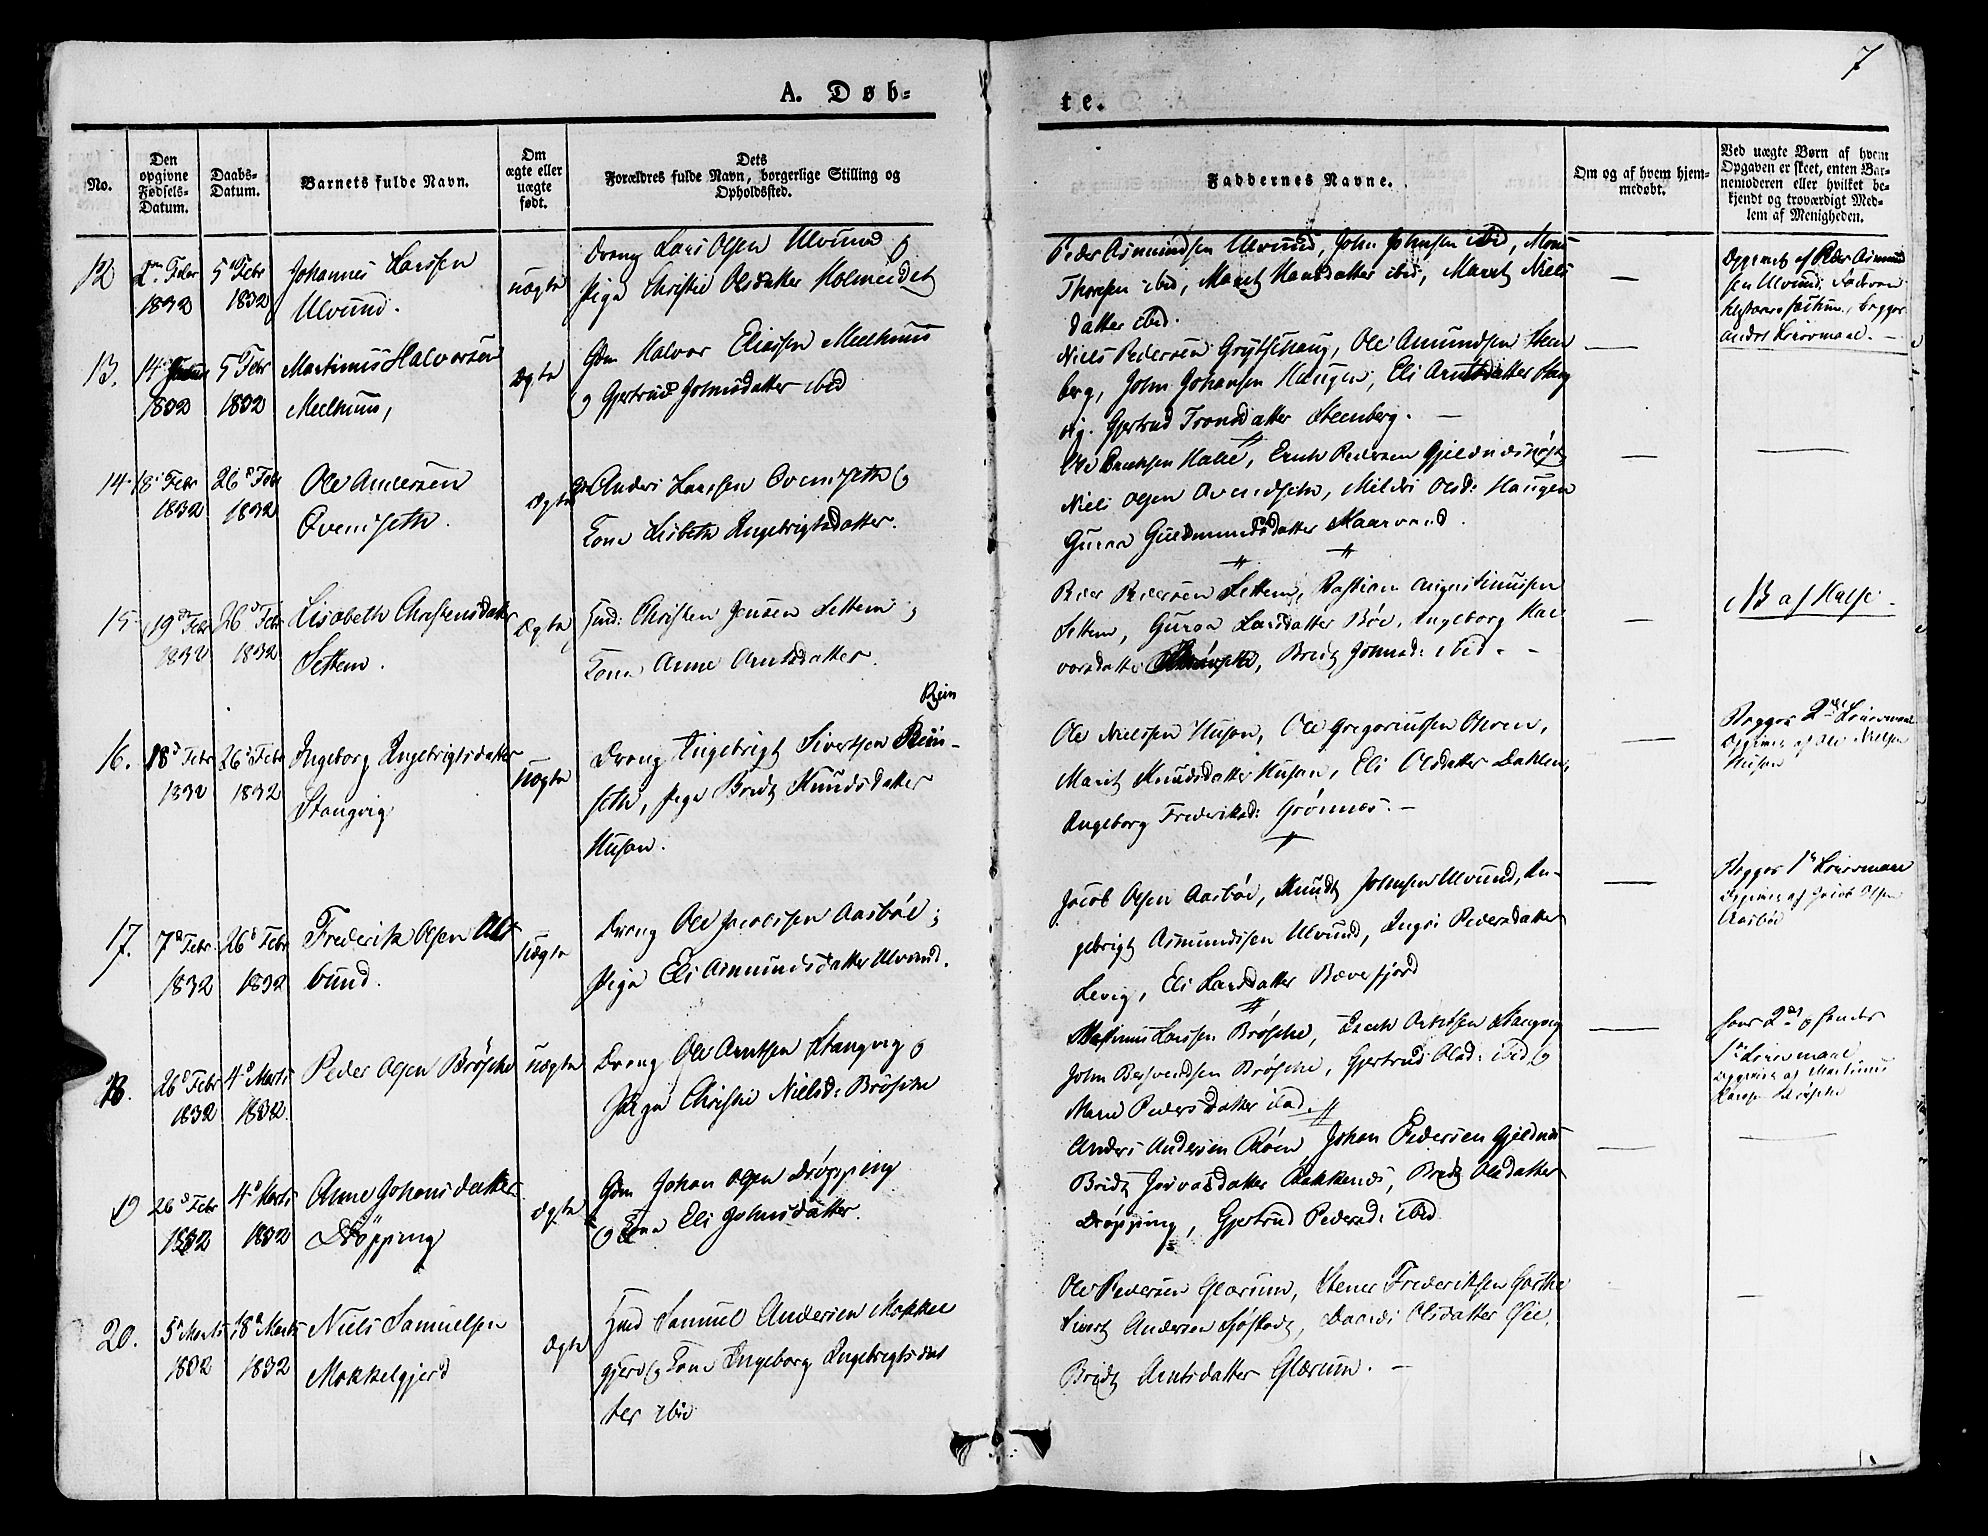 7
A. Døb-
te.
No.
Den
opgivne
Fødsels-
Datum.
Daabs-
Datum.
Barnets fulde Navn.
Om
ægte eller
uægte
født.
Dets
Forældres fulde Navn, borgerlige Stilling og
Opholdssted.
Faddernes Navne.
Om og af hvem hjem-
medøbt.
Ved uægte Børn af hvem
Opgaven er skeet, enten Bar-
nemoderen eller hvilket be-
kjendt og troværdigt Med-
lem af Menigheden.
12
Febr
1832
5 Febr
1832
Johannes Larssen
Ulvund.
uægte
Dreng Lars Olsen Ulvund og
Pige Christie Olsdatter Holmeidet
Peder Asmundsen Ulvund, John Johnsen ibid, Mons
Thoresen ibid, Marit Hansdatter ibid, Marit Niels
datter ibid.
—
Opgivet af Peder Asmund
sen Ulvund
begges
andet Leiermaal. —
13.
14
1832
5 Febr
1832
Martinus Halvorsen
Meelhuus,
Ægte
Gdm Halvor Eliassen Meelhuus
og Gjertrud Johnsdatter ibid
Niels Pedersen Grytskaug, Ole Amundsen Steen
berg, John Johansen Haugen, Eli Arntsdatter Stang
vig. Gjertrud Tronsdatter Steenberg. —
—
14
18 Febr
1832
26 Feb
1832
Ole Andersen
Qvenseth.
Ægte
Anders Larssen Qvenseth og
Kone Lisbeth Ingebrigtsdatter.
Ole Ericksen Halle, Erich Pedersen Gjeldnæs
Niels Olsen Qvendseth, Mildri Olsd: Haugen
Guroe Guldmundsdatter Kaarvand.
—
—
15
19 Febr
1832
26 Febr
1832
Lisabeth Christensdatter
Settem.
Ægte
Huusd: Christen Jensen Settem;
Kone Anne Arntsdatter.
Peder Pedersen Settem, Bastian Augustinussen
Settem, Guroe Larsdatter Bøe, Ingeborg Hal
vorsdatter, Bridt Johnsd: ibid. —
—
NB af Halse.
16.
18 Febr
1832
26 Febr
1832
Ingeborg Ingebrigtsdatter
Stangvig
uægte
Rein
Dreng Ingebrigt Sivertsen Rein-
seth, Pige Bridt Knudsdatter
Husan.
Ole Nielssen Husan, Ole Gregoriussen Ohren,
Marit Knudsdatter Husan, Eli Olsdatter Dahlen,
Ingeborg Frederiksd: Grønnes. —
—
Begges 2det Leiermaal
Opgivet af Ole Nielsen
Husan
17.
7 Febr
1832
26 Febr
1832
Frederik Olsen Ul-
bund.
Uægte
Dreng Ole Jacobsen Aasbøe;
Pige Eli Asmundsdatter Ulvund.
Jacob Olsen Aasbøe, Knudt Johnsen Ulvund, In-
gebrigt Asmundsen Ulvund, Ingri Pedersdatter
Levig, Eli Larsdatter Bøverfjord
—
Begges 1te Leiermaal
Opgivet af Jacob Olsen
Aasbøe
18.
26 Febr
1832
4 Marts
1832.
Peder Olsen Brøske
uægte
Dreng Ole Arntsen Stangvig og
Pige Christie Nielsd: Brøske
Martinus Larsen Brøske, Erich Arntsen Stangvig
John Bersvendsen Brøske, Gjertrud Olsd: ibid og
Marie Pedersdatter ibid.
—
hans 2det og hendes
1te Leiermaal
Opgivet af Martinus
Larsen Brøske
19
26 Febr
1832
4 Marts
1832
Anne Johansdatter
Drøpping
Ægte
Gdm Johan Olsen Drøpping
og Kone Eli Johnsdatter.
Anders Andersen Røen, Johan Pedersen Gjeldnæs
Bridt Iversdatter Bakkenes, Bridt Olsdatter
Drøpping, Gjertrud Pedersd: ibid
—
—
20.
5 Marts
1832
18 Marts
1832
Niels Samuelsen
Mokkelgjerd
Ægte
Huusd Samuel Andersen Mokkel
gjerd og Kone Ingeborg Ingebrigtsdat
ter ibid
Ole Pedersen Glærum, Stener Frederiksen
Sivert Andersen, Olsdatter
Bridt Arntsdatter Glærum. —
—